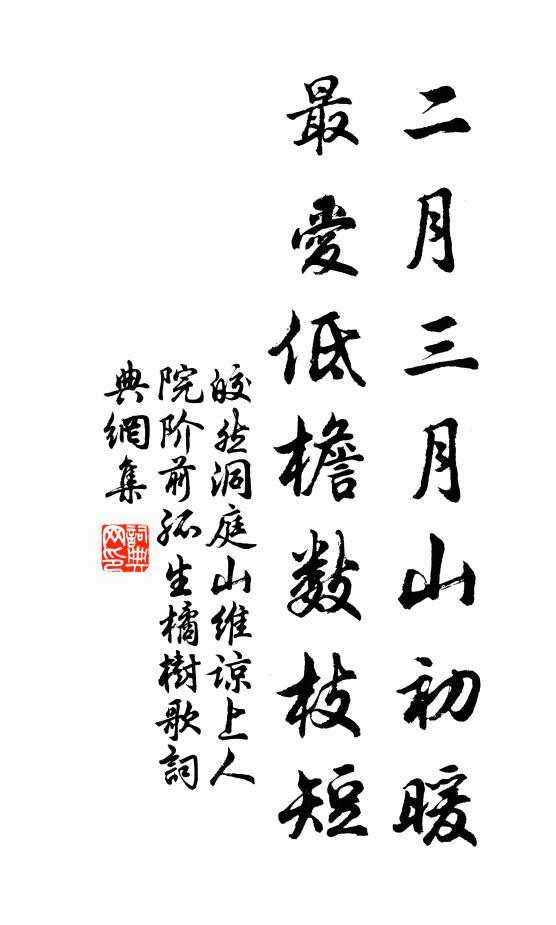 二月三月山初暖
最愛低檐數枝短
皎然洞庭山維諒上人
院阶前孤生橘樹歌詞
典網集
詞典
网印